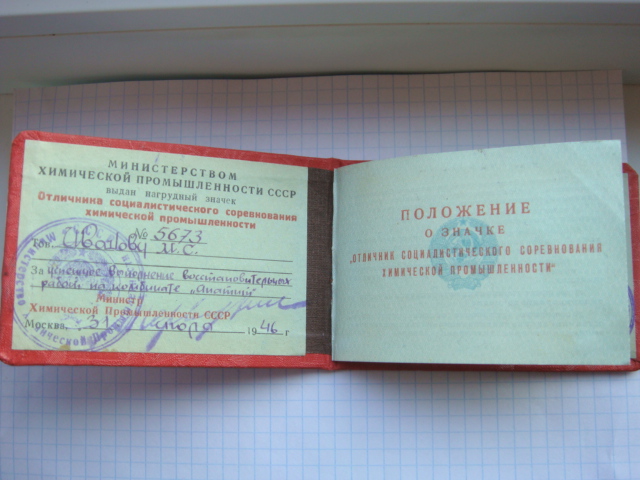 МИНИСТЕРСТВОМ
ХИМИЧЕСКОЙ ПРОМЫШЛЕННОСТИ СССР
выдан нагрудный значек
Отличника социалистического соревнования
химической промышленности
№ 5673
Тов. Иванову И.С.
За успешное выполнение восстановительных
работ на комбинате „Апатит"
Министр
Химической Промышленности СССР
Москва, 31 1946 г
ПОЛОЖЕНИЕ
О ЗНАЧКЕ
„ОТЛИЧНИК СОЦИАЛИСТИЧЕСКОГО СОРЕВНОВАНИЯ
ХИМИЧЕСКОЙ ПРОМЫШЛЕННОСТИ"